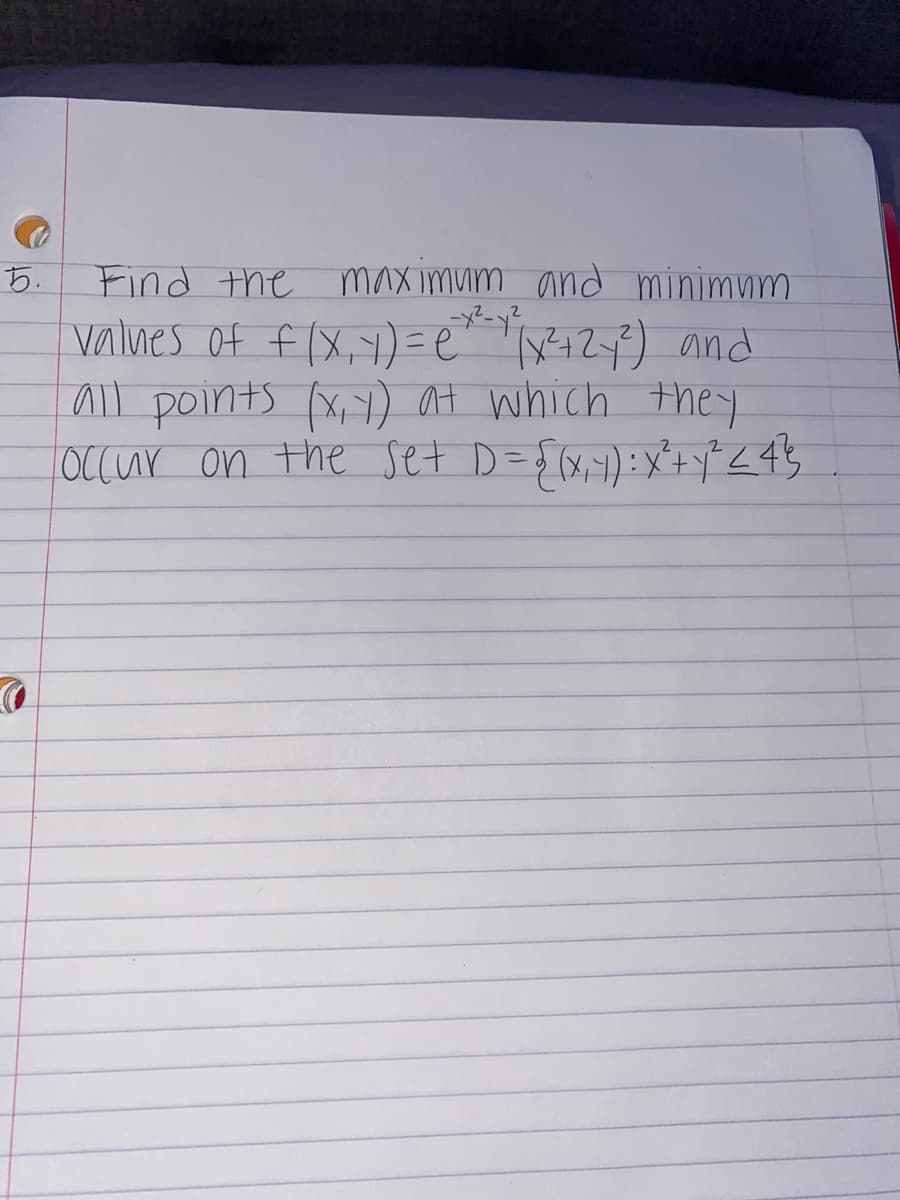 5. Find the maximum and minimum
values of f(x,y)=e^{-x²-y²}(x²+2y²) and
all points (x,y) at which they
occur on the set D={(x,y):x²+y²≤4}.